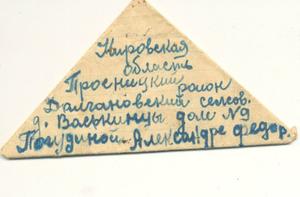 Кировская
область
Просницкий район
Долгановский селсов.
д. Васькинцы дом №9
Погудиной Александре Федор.